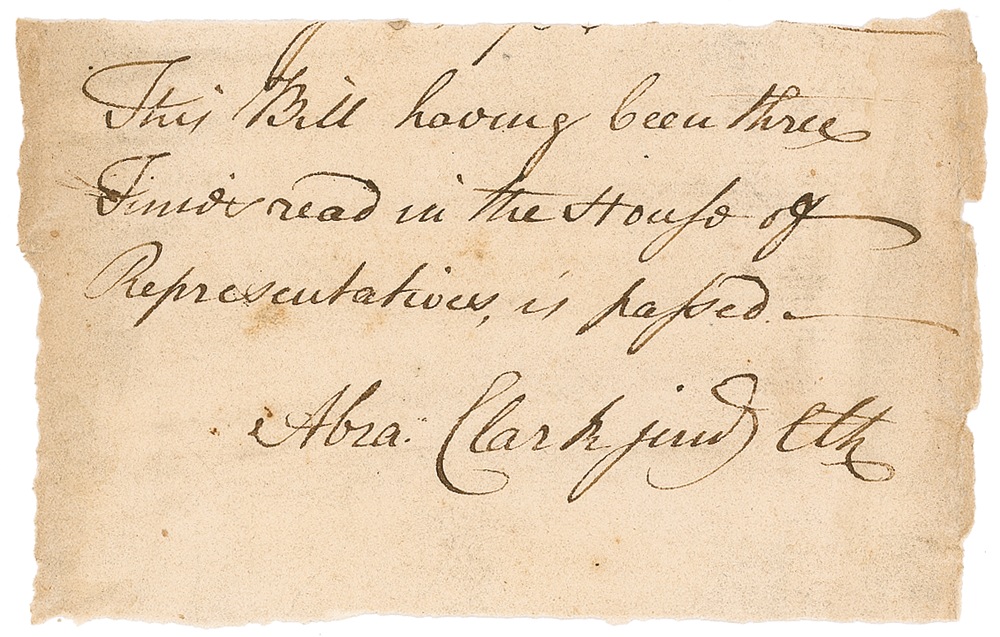 This Bill having been three
Times read in the House of
Representatives, is passed.
Abra. Clark junr. Clk